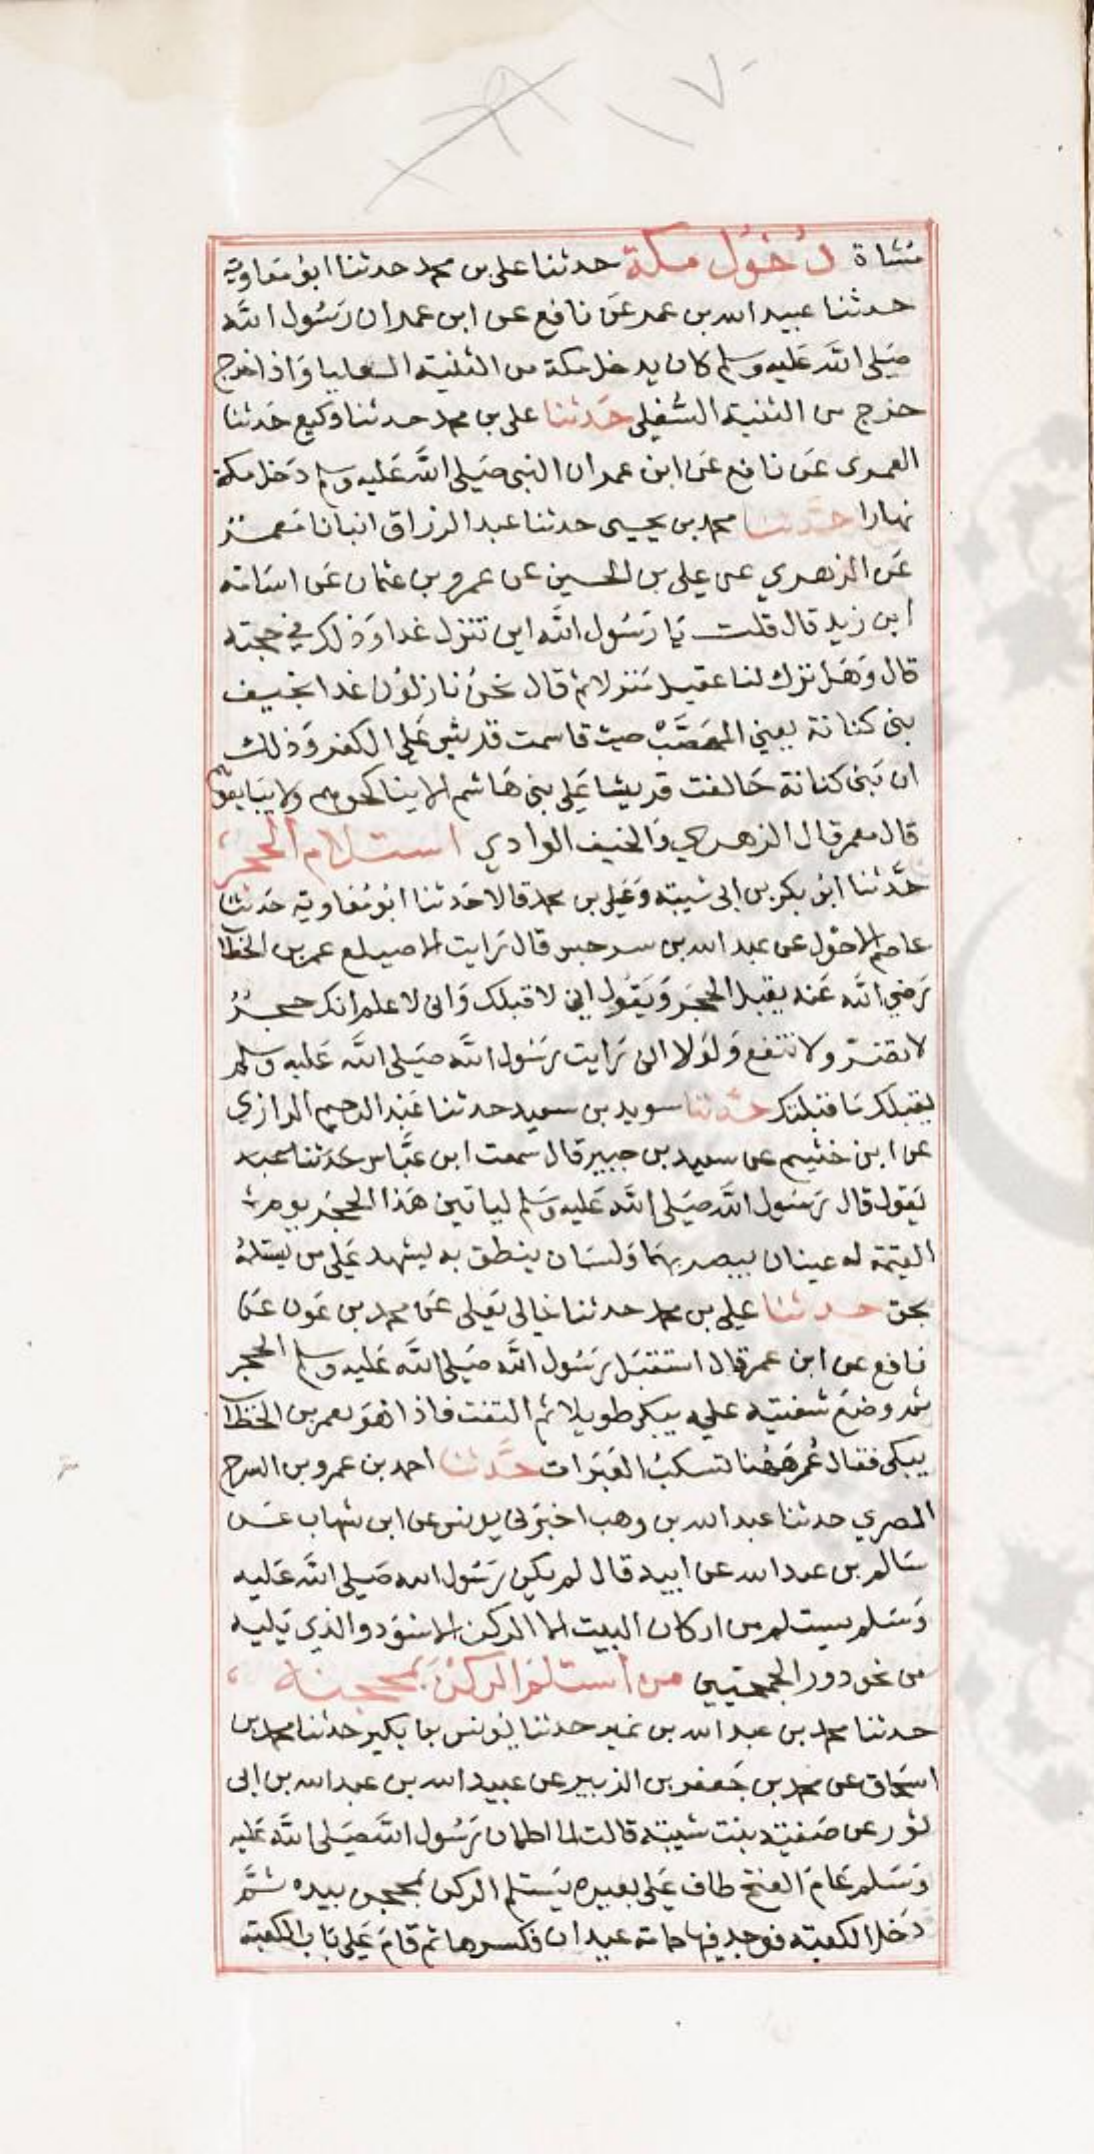 مشاة دخول مكة حدثنا علي بن محمد حدثنا ابو معاوية
حدثنا عبيد الله بن عمر عن نافع عن ابن عمر ان رسول الله
صلى الله عليه وسلم كان يدخل مكة من الثنية العليا واذا خرج
خرج من الثنية السفلى حدثنا علي بن محمد حدثنا وكيع حدثنا
العمري عن نافع عن ابن عمر ان النبي صلى الله عليه وسلم دخل مكة
نهارا حدثنا محمد بن يحيى حدثنا عبد الرزاق انبانا معمر
عن الزهري عن علي بن الحسين عن عمرو بن عثمان عن اسامة
ابن زيد قال قلت يا رسول الله اين تنزل غدا وذلك في حجته
قال وهل ترك لنا عقيل منزلا ثم قال نحن نازلون غدا بخيف
بني كنانة يعني المحصب حيث قاسمت قريش على الكفر وذلك
ان بني كنانة حالفت قريشا على بني هاشم الا يناكحوهم ولا يبايعوهم
قال معمر قال الزهري والخيف الوادي استلام الحجر
حدثنا ابو بكر بن ابي شيبة وعلي بن محمد قالا حدثنا ابو معاوية حدثنا
عاصم الاحول عن عبد الله بن سرجس قال رايت الاصيلع عمر بن الخطاب
رضي الله عنه يقبل الحجر ويقول اني لاقبلك واني لاعلم انك حجر
لا تضر ولا تنفع ولولا اني رايت رسول الله صلى الله عليه وسلم
يقبلك ما قبلتك حدثنا سويد بن سعيد حدثنا عبد الرحيم الرازي
عن ابن خثيم عن سعيد بن جبير قال سمعت ابن عباس
يقول قال رسول الله صلى الله عليه وسلم لياتين هذا الحجر يوم
القيمة له عينان يبصر بهما ولسان ينطق به ليشهد على من يستلمه
بحق حدثنا علي بن محمد حدثنا خالي يعلى عن محمد بن عون عن
نافع عن ابن عمر قال استقبل رسول الله صلى الله عليه وسلم الحجر
ثم وضع شفتيه عليه يبكي طويلا ثم التفت فاذا هو بعمر بن الخطاب
يبكي فقال عمر ههنا تسكب العبرات حدثنا احمد بن عمرو بن السرح
المصري حدثنا عبد الله بن وهب اخبرني يونس عن ابن شهاب عن
سالم بن عبد الله عن ابيه قال لم يكن رسول الله صلى الله عليه
وسلم يستلم من اركان البيت الا الركن الاسود والذي يليه
من نحو دور الجمحيين من استلم الركن بمحجنه
حدثنا محمد بن عبد الله بن نمير حدثنا يونس بن بكير حدثنا محمد بن
اسحاق عن محمد بن جعفر بن الزبير عن عبيد الله بن عبد الله بن ابي
ثور عن صفية بنت شيبة قالت لما اطمان رسول الله صلى الله عليه
وسلم عام الفتح طاف على بعيره يستلم الركن بمحجن بيده ثم
دخل الكعبة فوجد فيها حمامة عيدان فكسرها ثم قام على باب الكعبة